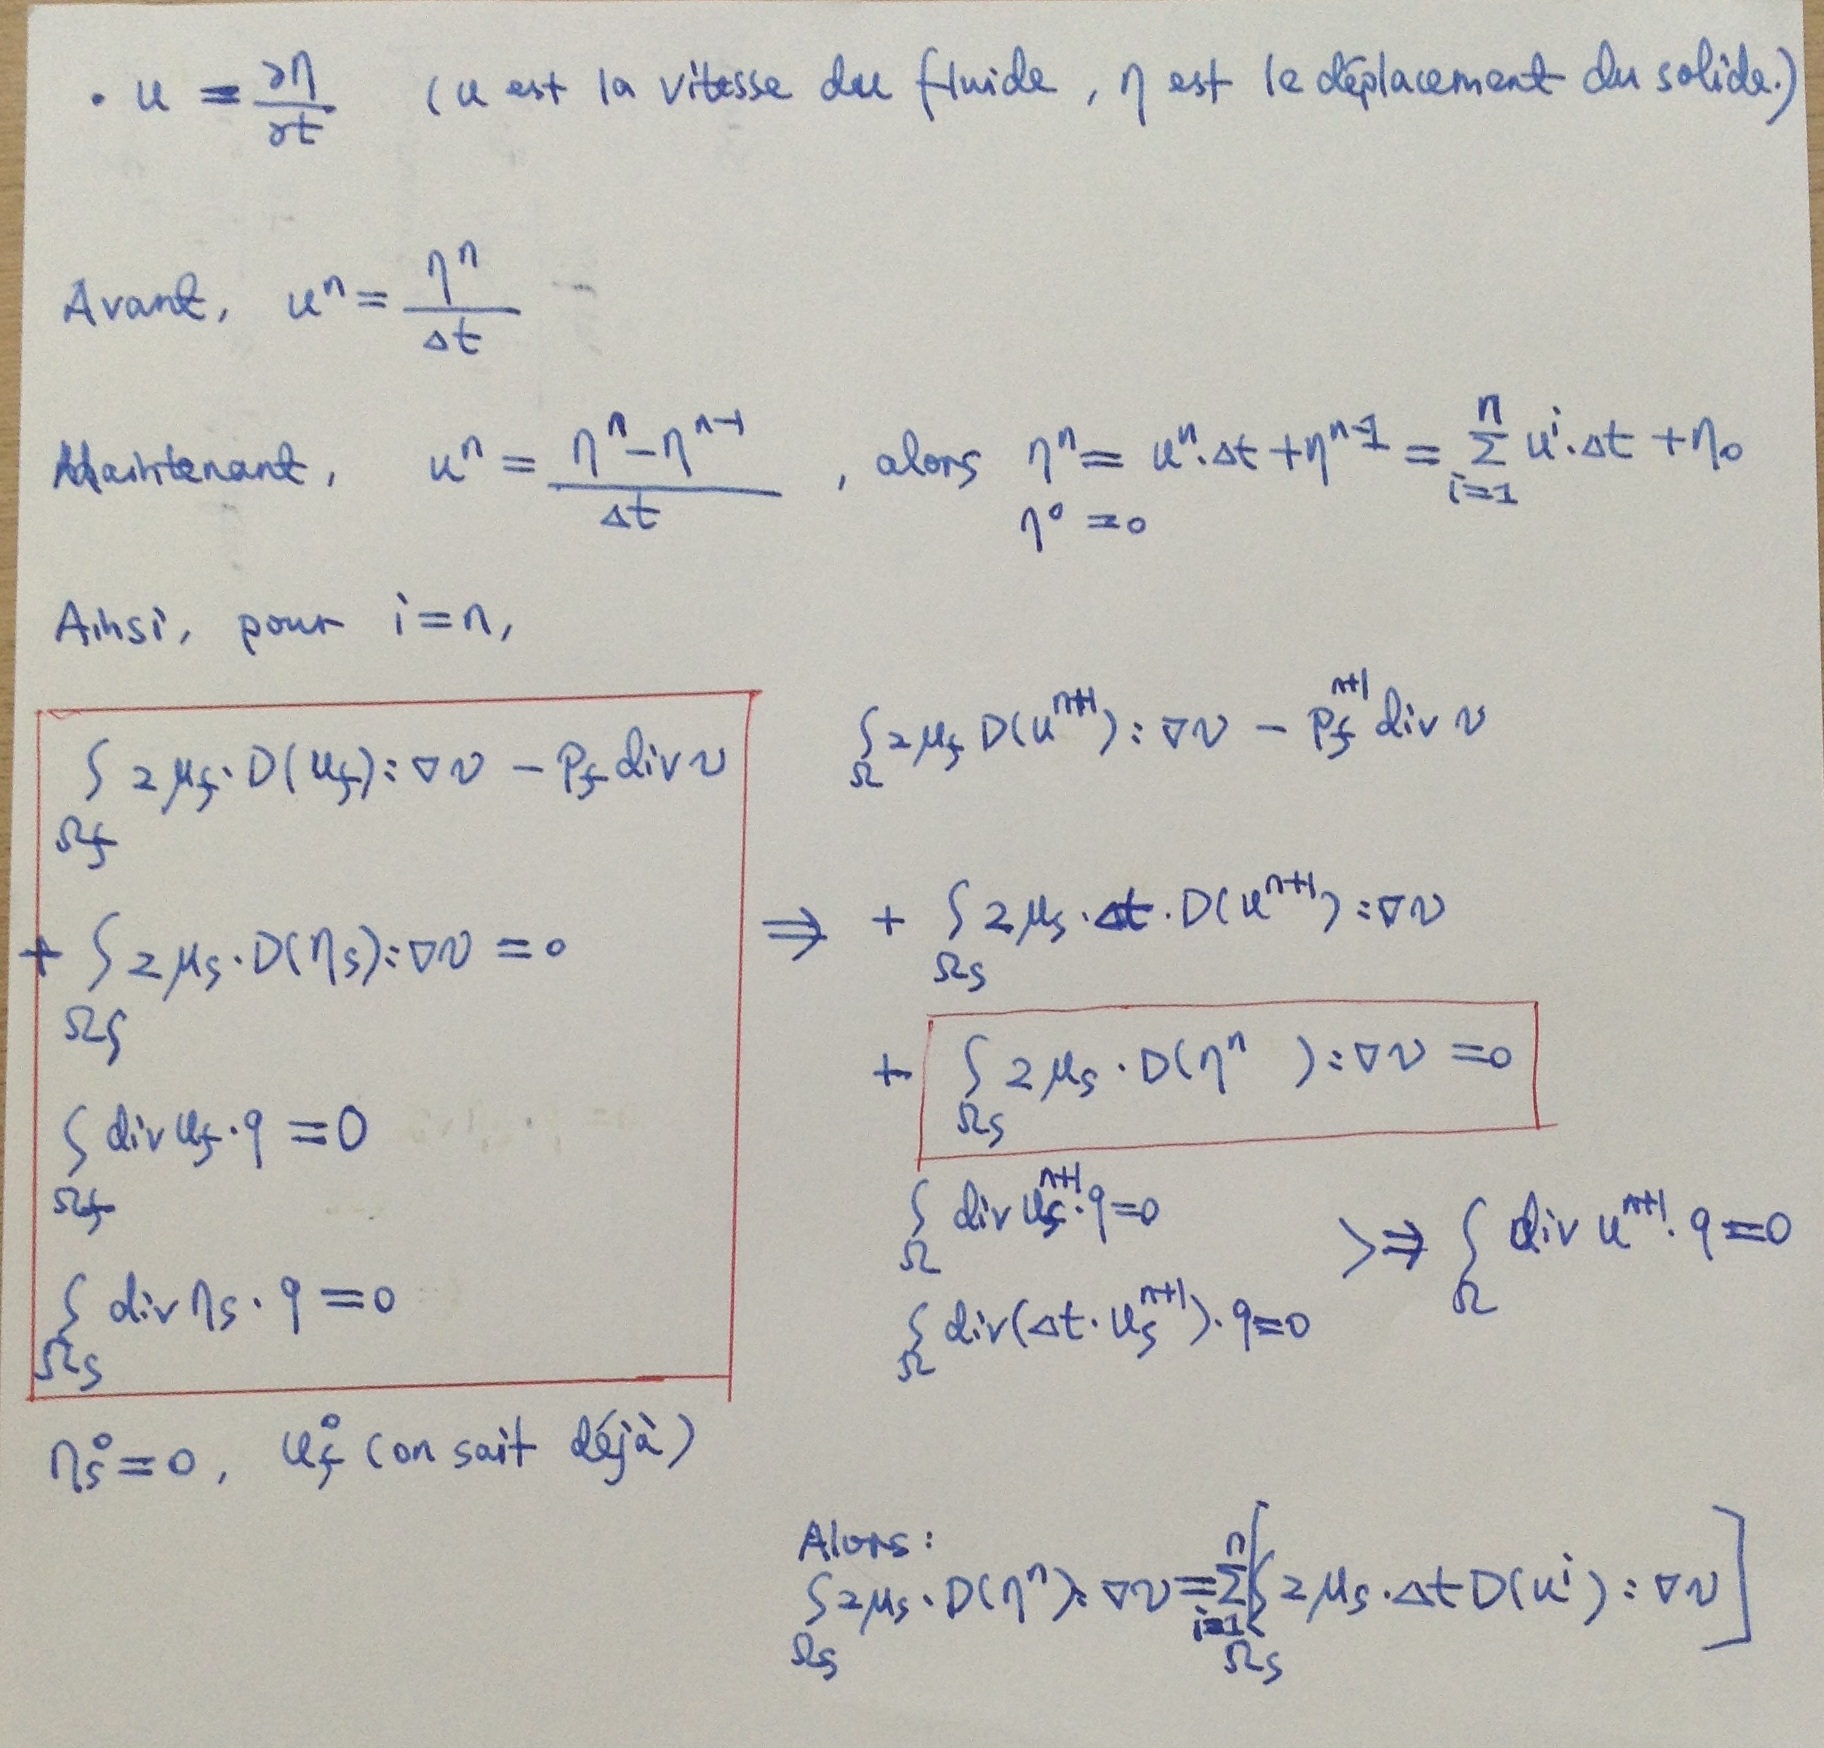 • u = ∂η/∂t (u est la vitesse du fluide, η est le déplacement du solide.)
Avant, uⁿ = ηⁿ/Δt
Maintenant, uⁿ = (ηⁿ − ηⁿ⁻¹)/Δt , alors ηⁿ = uⁿ·Δt + ηⁿ⁻¹ = Σ_{i=1}^{n} uⁱ·Δt + η₀
η⁰ = 0
Ainsi, pour i = n,
∫_{Ωf} 2μf·D(uf):∇v − Pf div v
+ ∫_{Ωs} 2μs·D(ηs):∇v = 0
∫_{Ωf} div uf·q = 0
∫_{Ωs} div ηs·q = 0
ηs⁰ = 0, uf⁰ (on sait déjà)
⇒
∫_{Ω} 2μf D(uⁿ⁺¹):∇v − Pfⁿ⁺¹ div v
+ ∫_{Ωs} 2μs·Δt·D(uⁿ⁺¹):∇v
+ ∫_{Ωs} 2μs·D(ηⁿ ):∇v = 0
∫_{Ω} div ufⁿ⁺¹·q = 0
∫_{Ω} div(Δt·usⁿ⁺¹)·q = 0
> ⇒ ∫_{Ω} div uⁿ⁺¹·q = 0
Alors :
∫_{Ωs} 2μs·D(ηⁿ):∇v = Σ_{i=1}^{n} [∫_{Ωs} 2μs·Δt D(uⁱ):∇v]